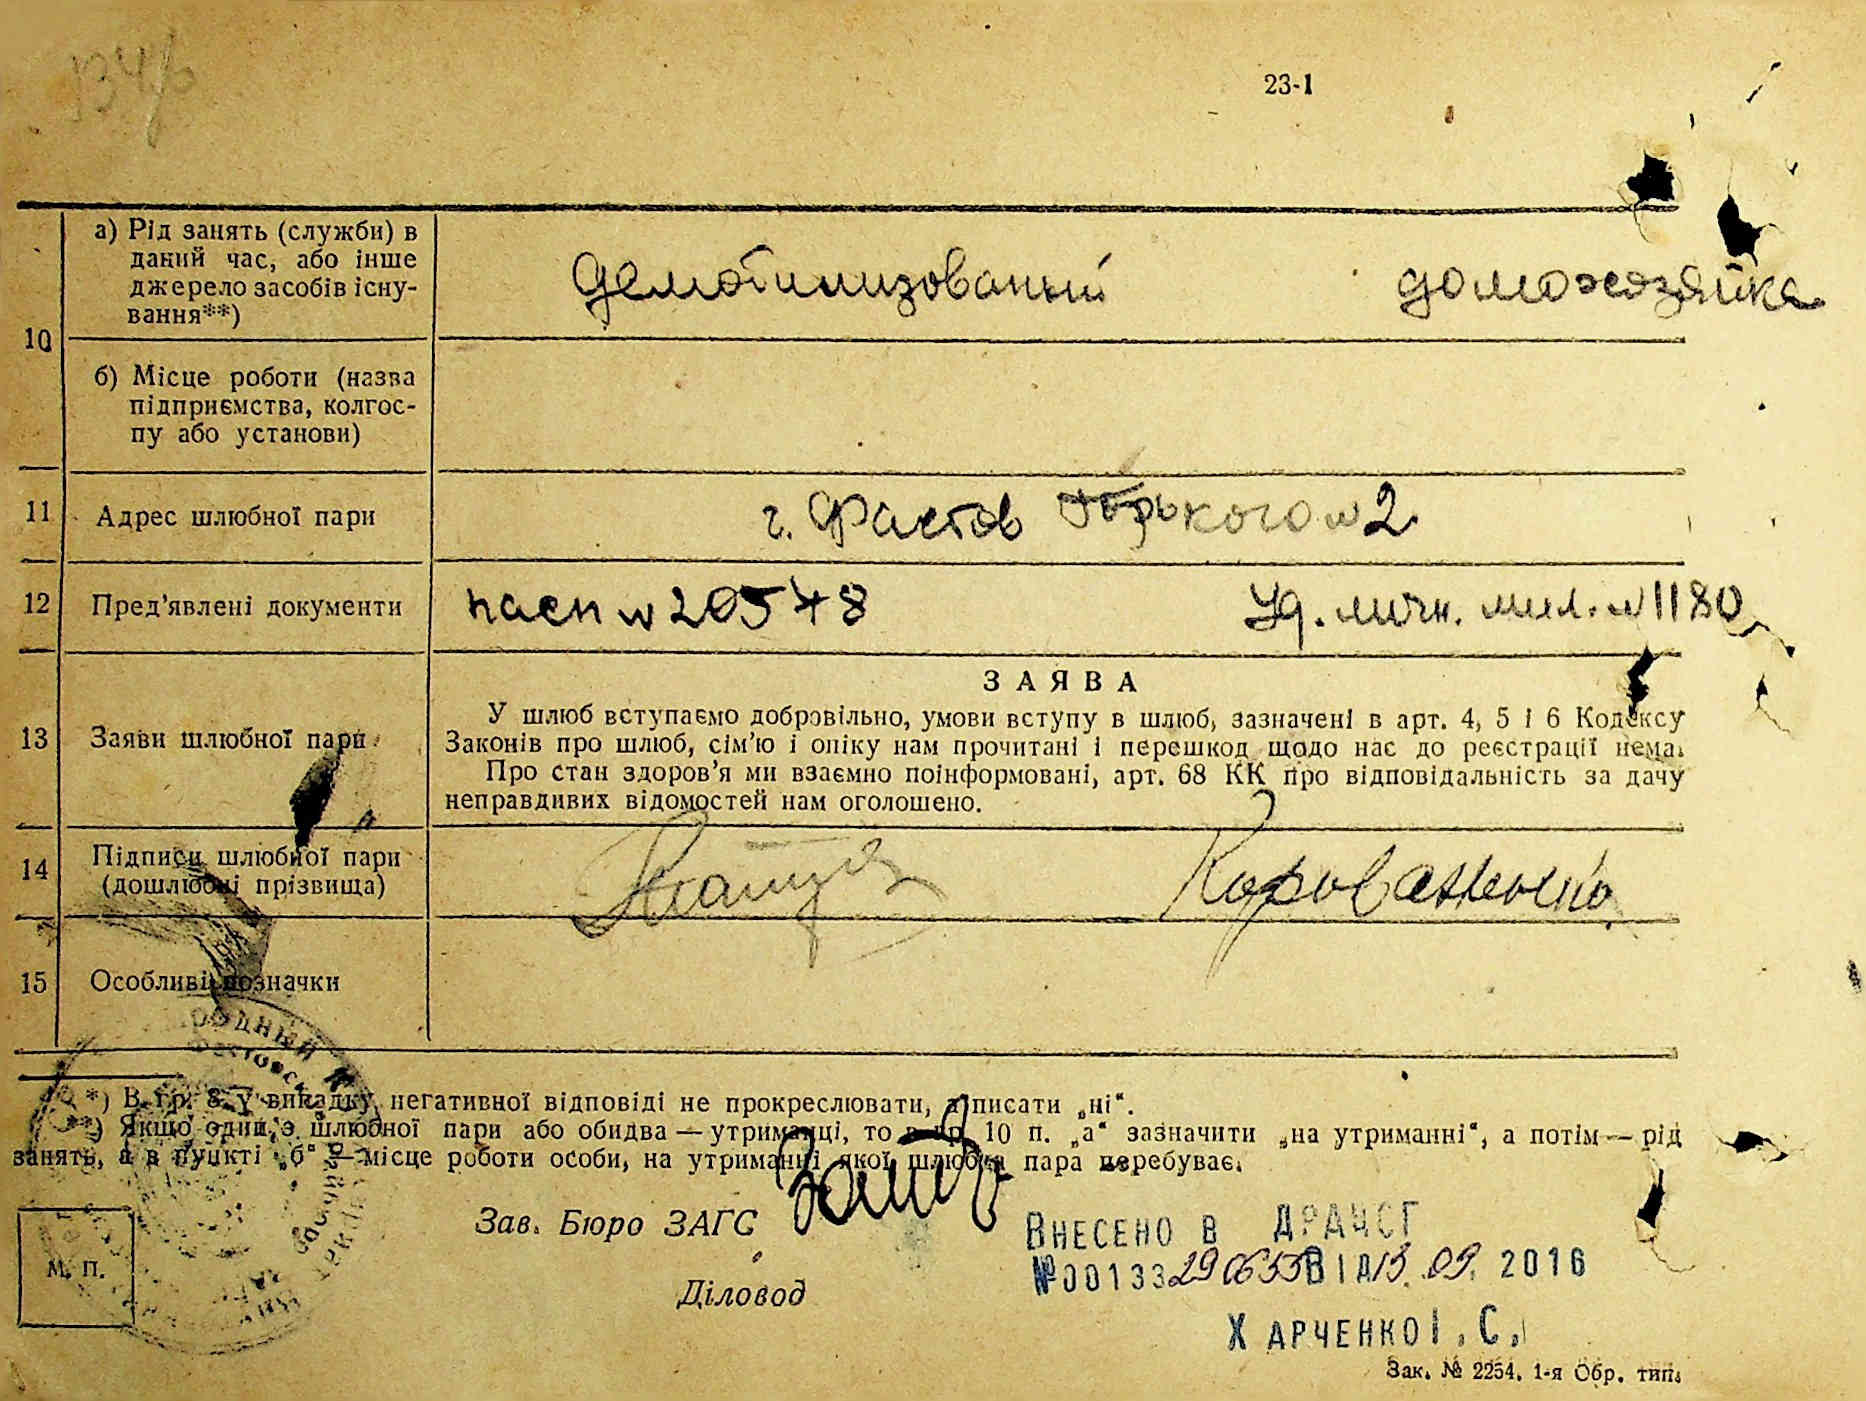 134
23-1
10
а) Рід занять (служби) в
даний час, або інше
джерело засобів існу-
вання**)
демобилизованый домохозяйка
б) Місце роботи (назва
підприємства, колгос-
пу або установи)
11 Адрес шлюбної пари г. Фастов Горького № 2
12 Пред'явлені документи пасп № 20548 Уд. личн. мил. № 1180
13 Заяви шлюбної пари
ЗАЯВА
У шлюб вступаємо добровільно, умови вступу в шлюб, зазначені в арт. 4, 5 і 6 Кодексу
Законів про шлюб, сім'ю і опіку нам прочитані і перешкод щодо нас до реєстрації нема.
Про стан здоров'я ми взаємно поінформовані, арт. 68 КК про відповідальність за дачу
неправдивих відомостей нам оголошено.
14 Підписи шлюбної пари
(дошлюбні прізвища)
15 Особливі позначки
*) В гр. 8 у випадку негативної відповіді не прокреслювати, а писати „ні“.
**) Якщо один з шлюбної пари або обидва — утриманці, то в гр. 10 п. „а“ зазначити „на утриманні“, а потім — рід
занять, а в пункті „б“ — місце роботи особи, на утриманні якої шлюбна пара перебуває.
Зав. Бюро ЗАГС
М. П.
Діловод
Внесено в ДРАЦСГ
№00133290655 від 13.09.2016
Харченко І.С.
Зак. № 2254. 1-я Обр. тип.